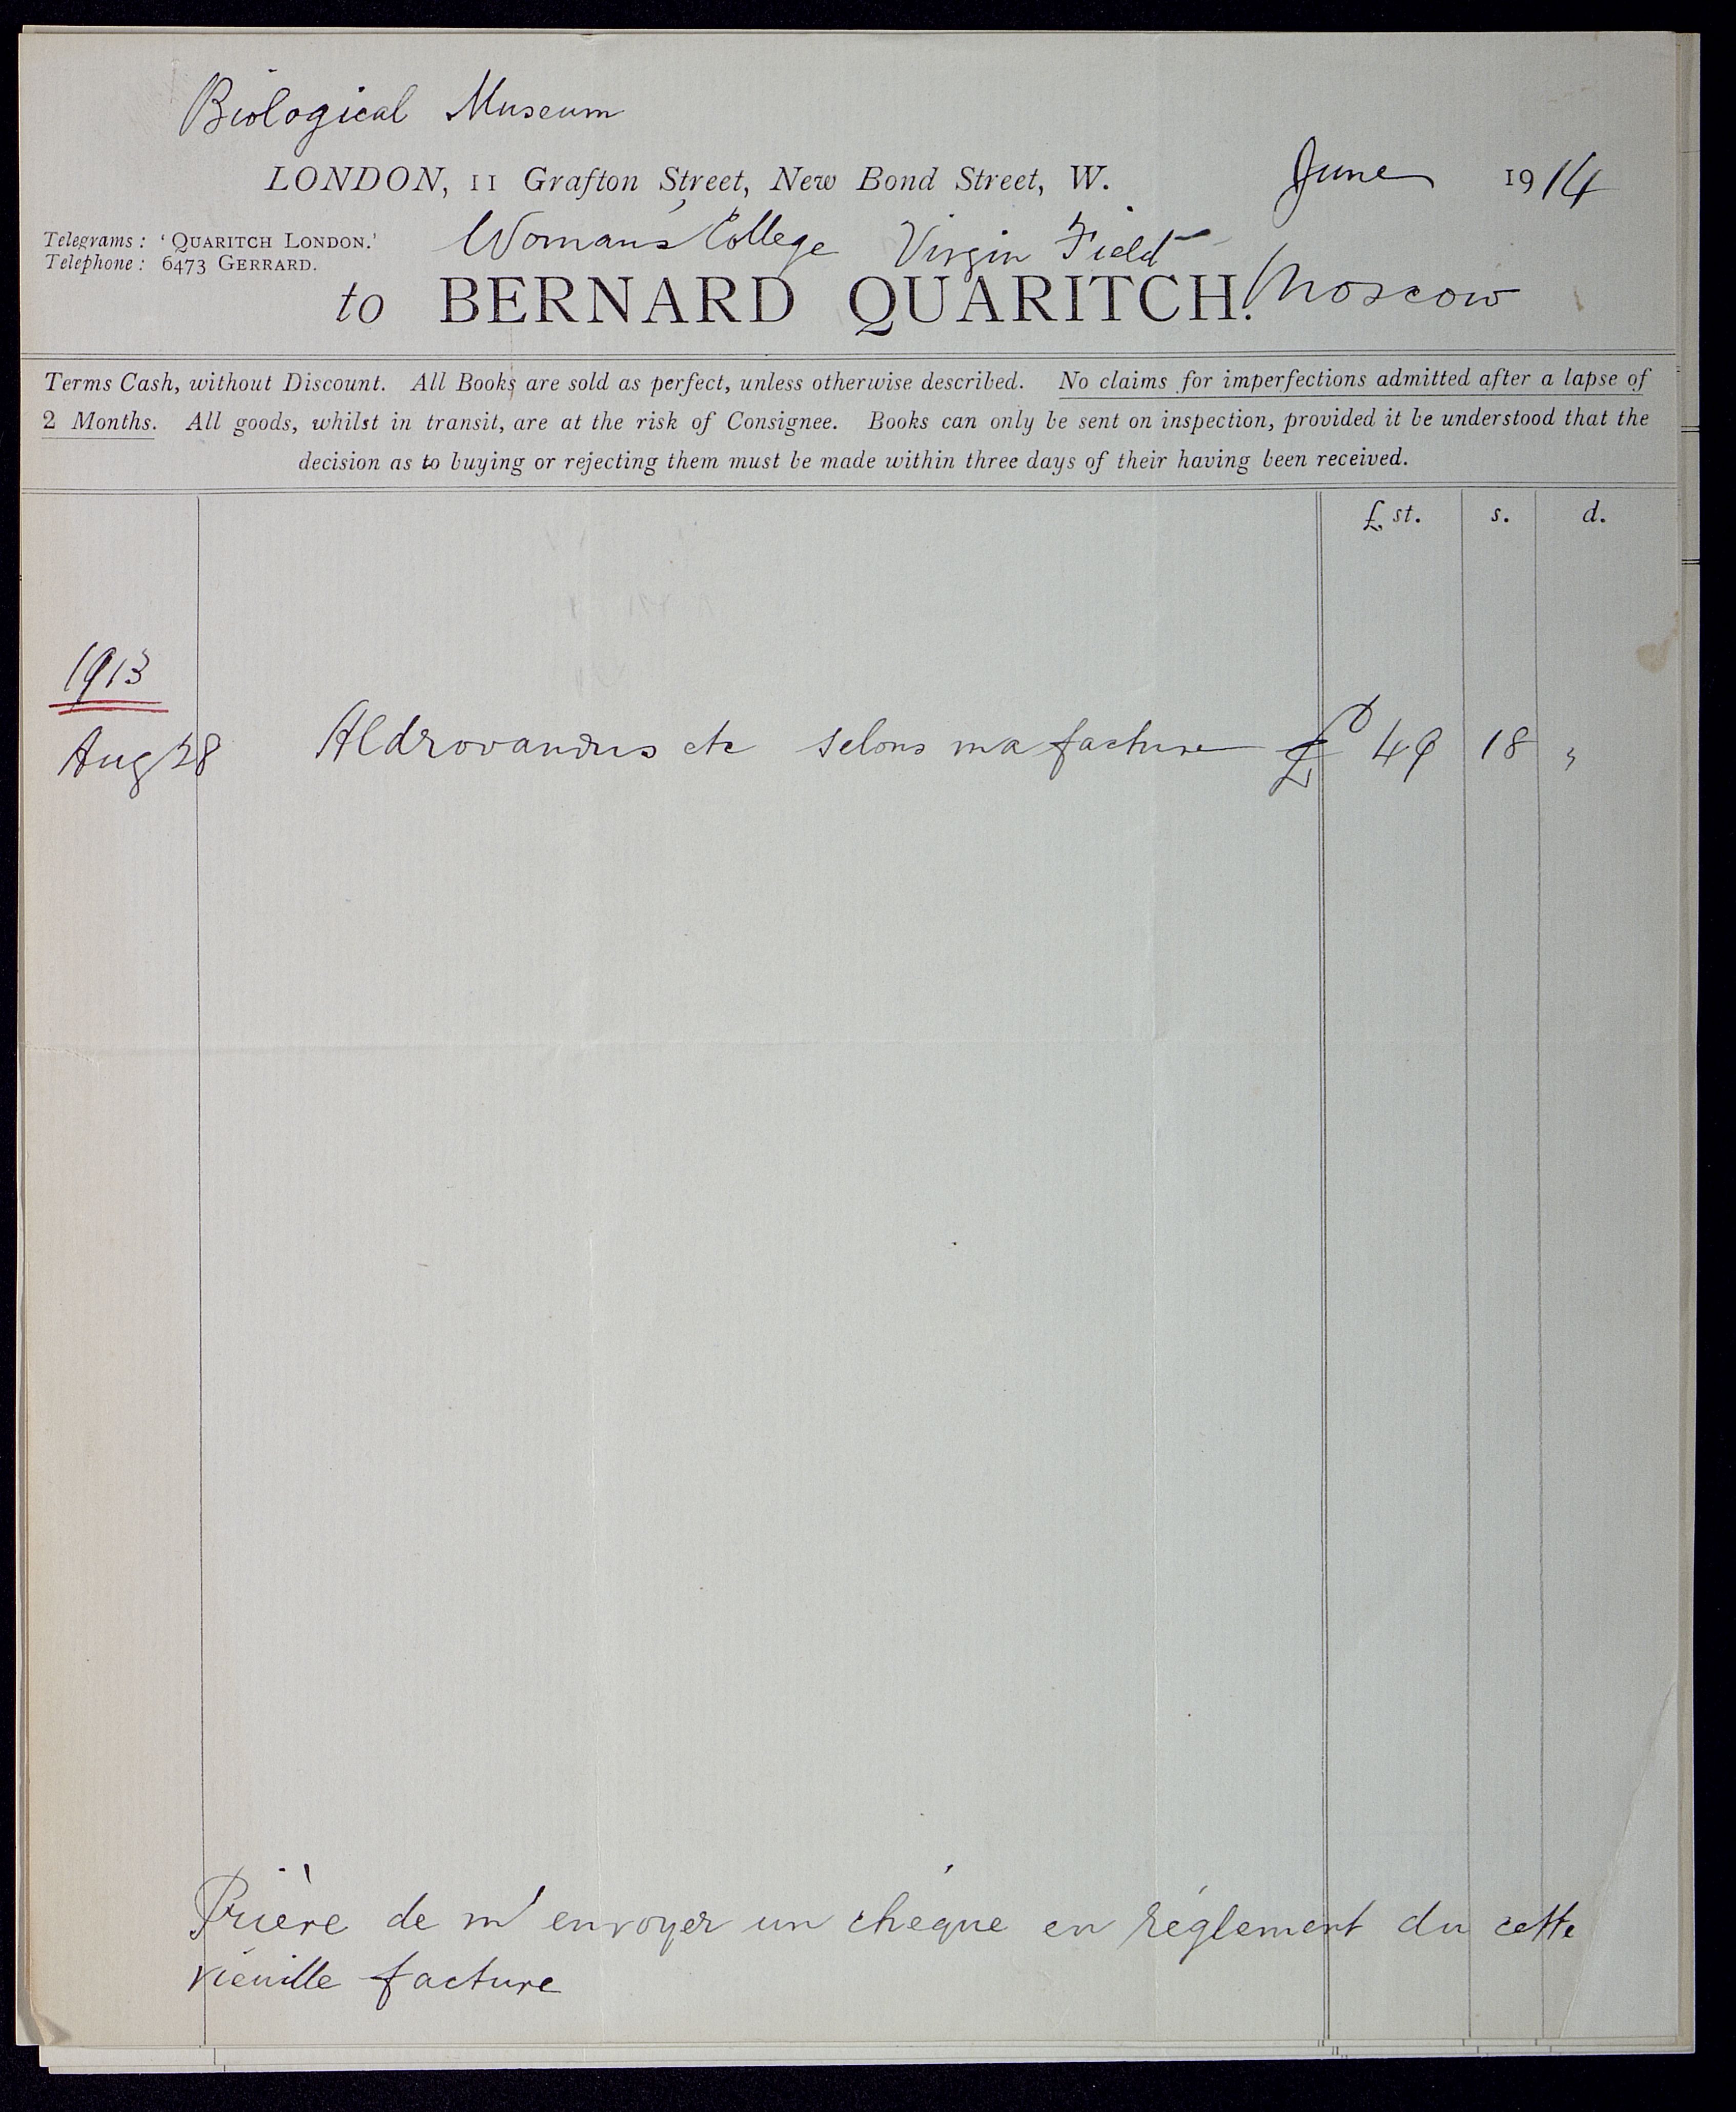 Biological Museum
LONDON, 11 Grafton Street, New Bond Street, W. June 1914
Woman's College Virgin Field
Telegrams: 'QUARITCH LONDON.'
Telephone: 6473 GERRARD.
Moscow
to BERNARD QUARITCH.
Terms Cash, without Discount. All Books are sold as perfect, unless otherwise described. No claims for imperfections admitted after a lapse of
2 Months. All goods, whilst in transit, are at the risk of Consignee. Books can only be sent on inspection, provided it be understood that the
decision as to buying or rejecting them must be made within three days of their having been received.
£ st. s. d.
1913
Aug 28 Aldrovandus etc selons ma facture £ 49 18 "
Prière de m'envoyer un chéque en réglement du cette
vieuille facture